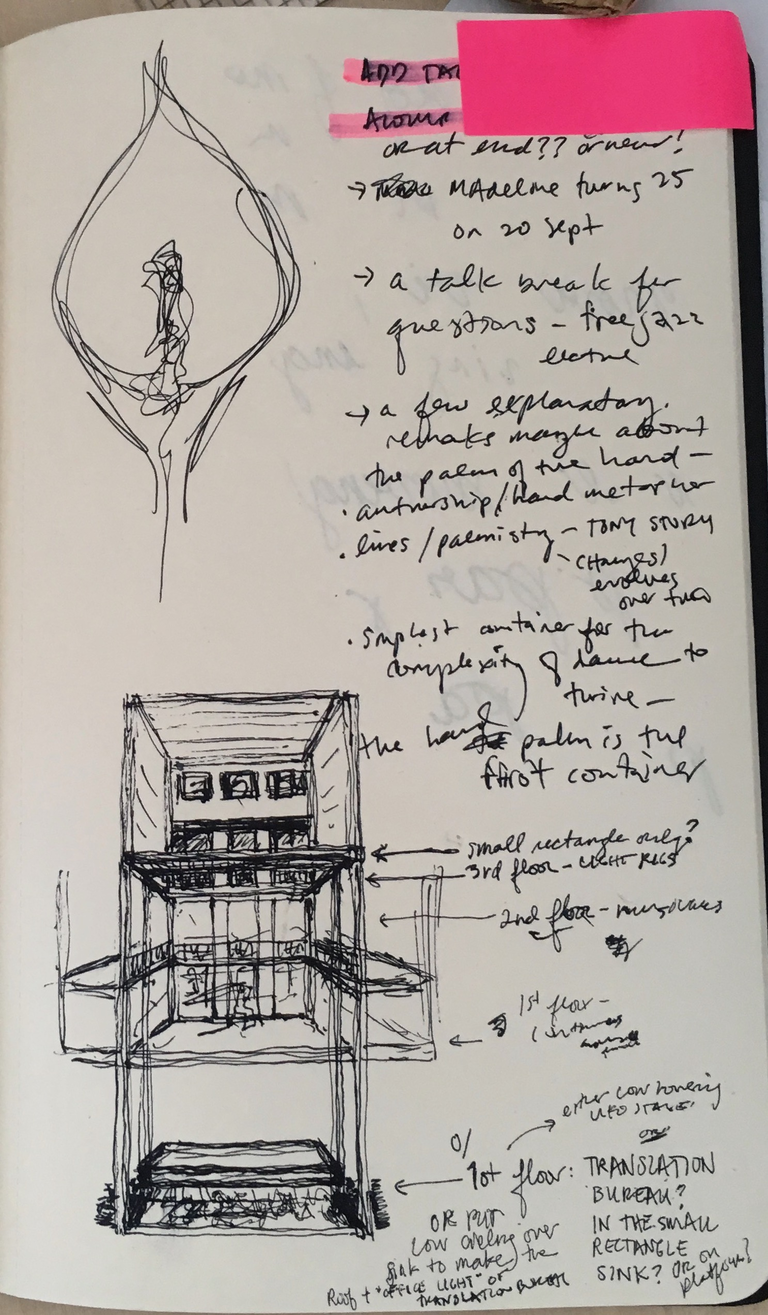 ADD
or at end?? or near!
→ Madeline turns 25
on 20 Sept
→ a talk break for
questions – free jazz
lecture
→ a few explanatory
remarks maybe about
the palm of the hand –
· authorship/hand metaphor
· lines/palmistry – TONY STORY
– CHANGES/
evolves
over time
· Simplest container for the
complexity of dance to
the hand palm is the
first container
small rectangle only?
3rd floor – LIGHT RIGS
2nd floor – musicians
1st floor –
enter low hovering
UFO STAGE!
OR
0/
1st floor: TRANSLATION
BUREAU?
IN THE SMALL
RECTANGLE
SINK? OR on
platform?
OR PUT
low ceiling over
sink to make the
Roof + "OFFICE LIGHT" OF
TRANSLATION BUREAU